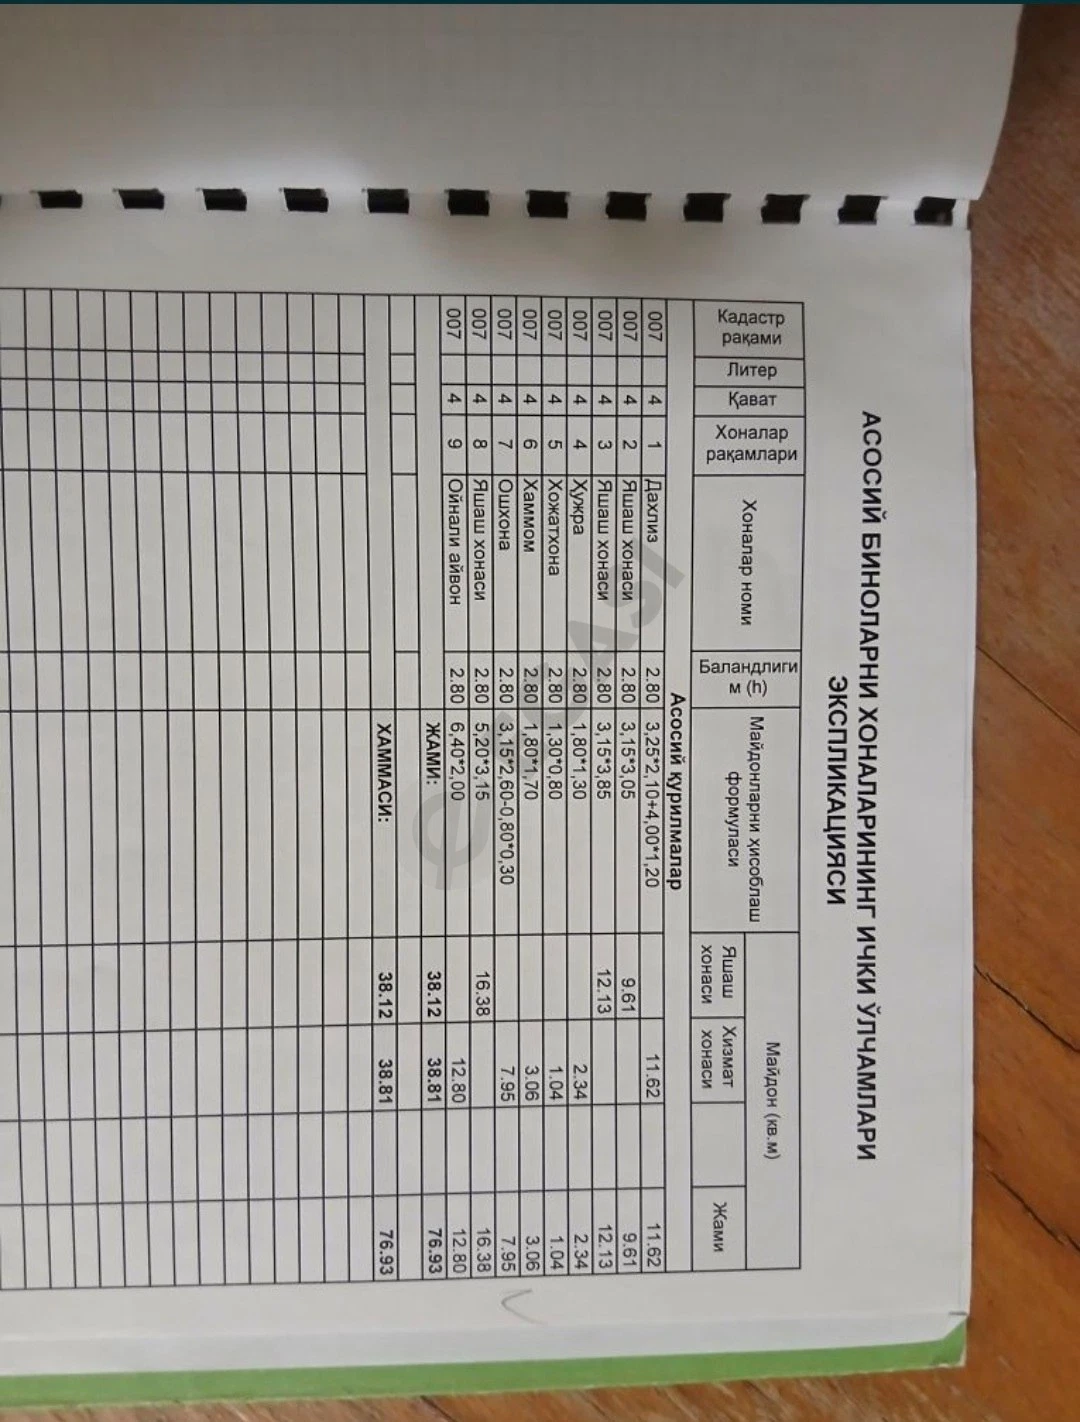 АСОСИЙ БИНОЛАРНИ ХОНАЛАРИНИНГ ИЧКИ ЎЛЧАМЛАРИ
ЭКСПЛИКАЦИЯСИ
Кадастр рақами Литер Қават Хоналар рақамлари Хоналар номи Баландлиги м (h) Майдонларни ҳисоблаш формуласи Майдон (кв.м)
Яшаш хонаси Хизмат хонаси Жами
Асосий қурилмалар
007 4 1 Дахлиз 2.80 3,25*2,10+4,00*1,20 11.62 11.62
007 4 2 Яшаш хонаси 2.80 3,15*3,05 9.61 9.61
007 4 3 Яшаш хонаси 2.80 3,15*3,85 12.13 12.13
007 4 4 Ҳужра 2.80 1,80*1,30 2.34 2.34
007 4 5 Хожатхона 2.80 1,30*0,80 1.04 1.04
007 4 6 Хаммом 2.80 1,80*1,70 3.06 3.06
007 4 7 Ошхона 2.80 3,15*2,60-0,80*0,30 7.95 7.95
007 4 8 Яшаш хонаси 2.80 5,20*3,15 16.38 16.38
007 4 9 Ойнали айвон 2.80 6,40*2,00 12.80 12.80
ЖАМИ: 38.12 38.81 76.93
ХАММАСИ: 38.12 38.81 76.93